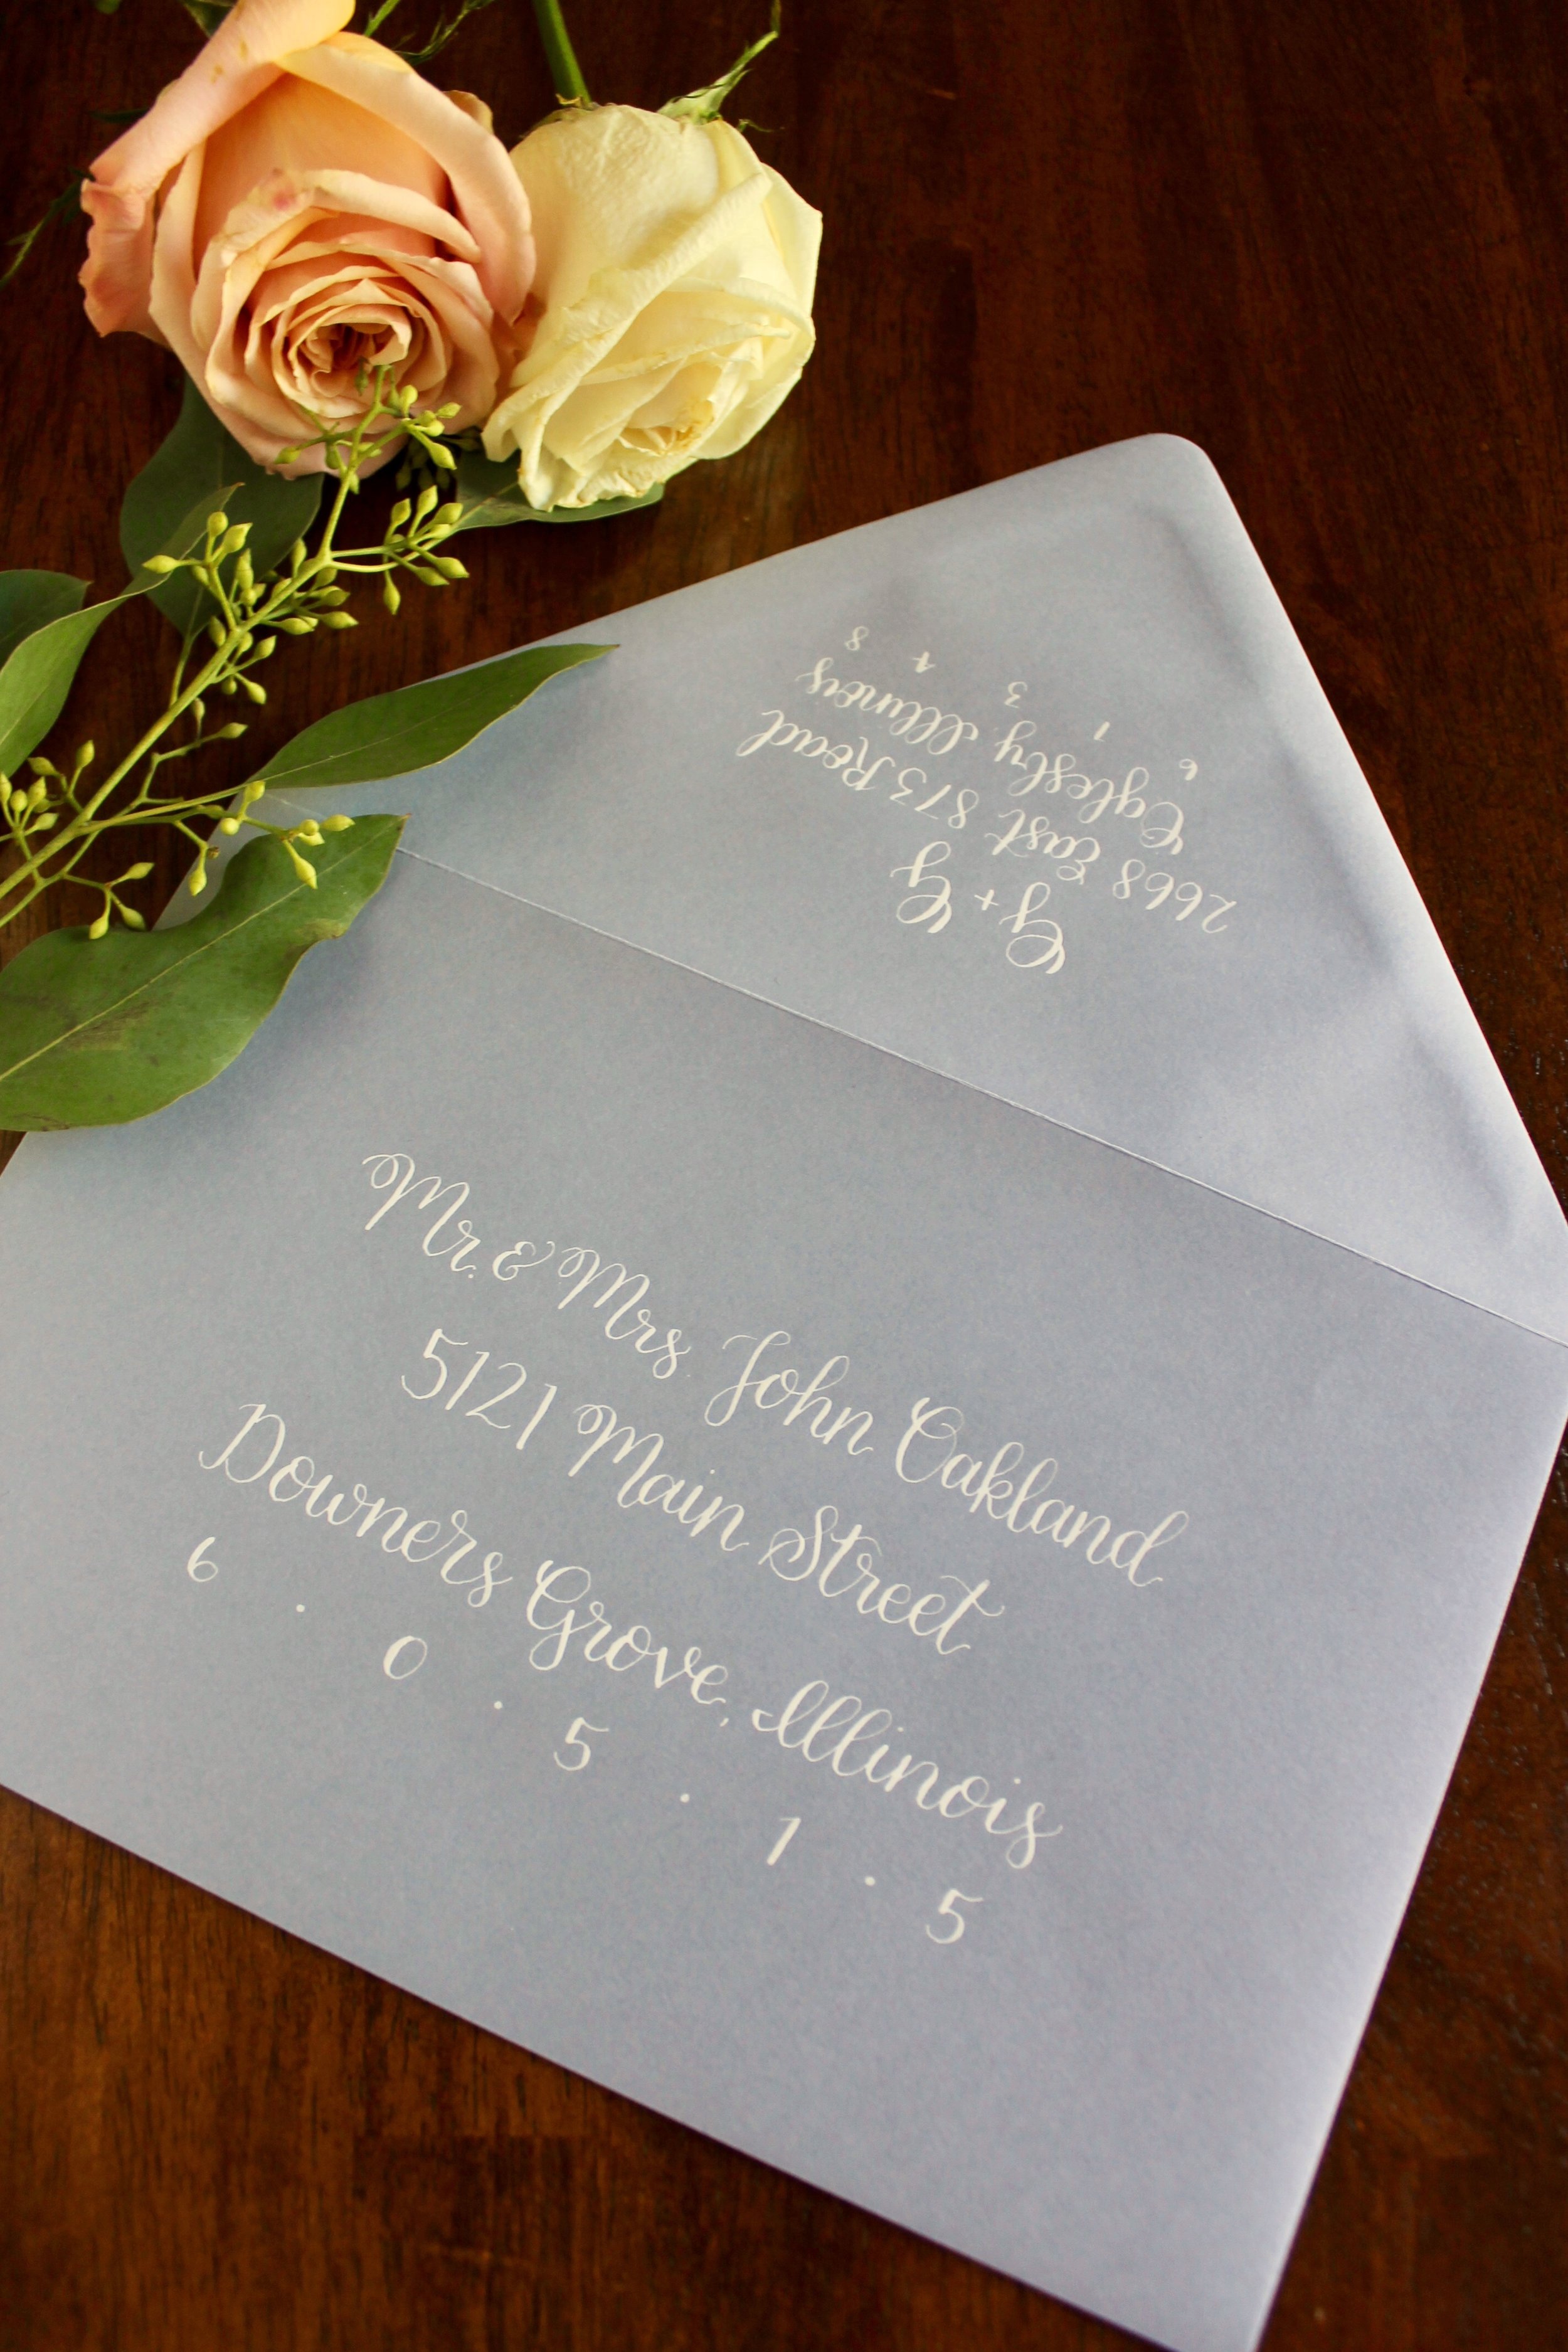 G + G
2668 East 873 Road
Oglesby Illinois
6 1 3 4 8
Mr. & Mrs John Oakland
5121 Main Street
Downers Grove, Illinois
6 . 0 . 5 . 1 . 5